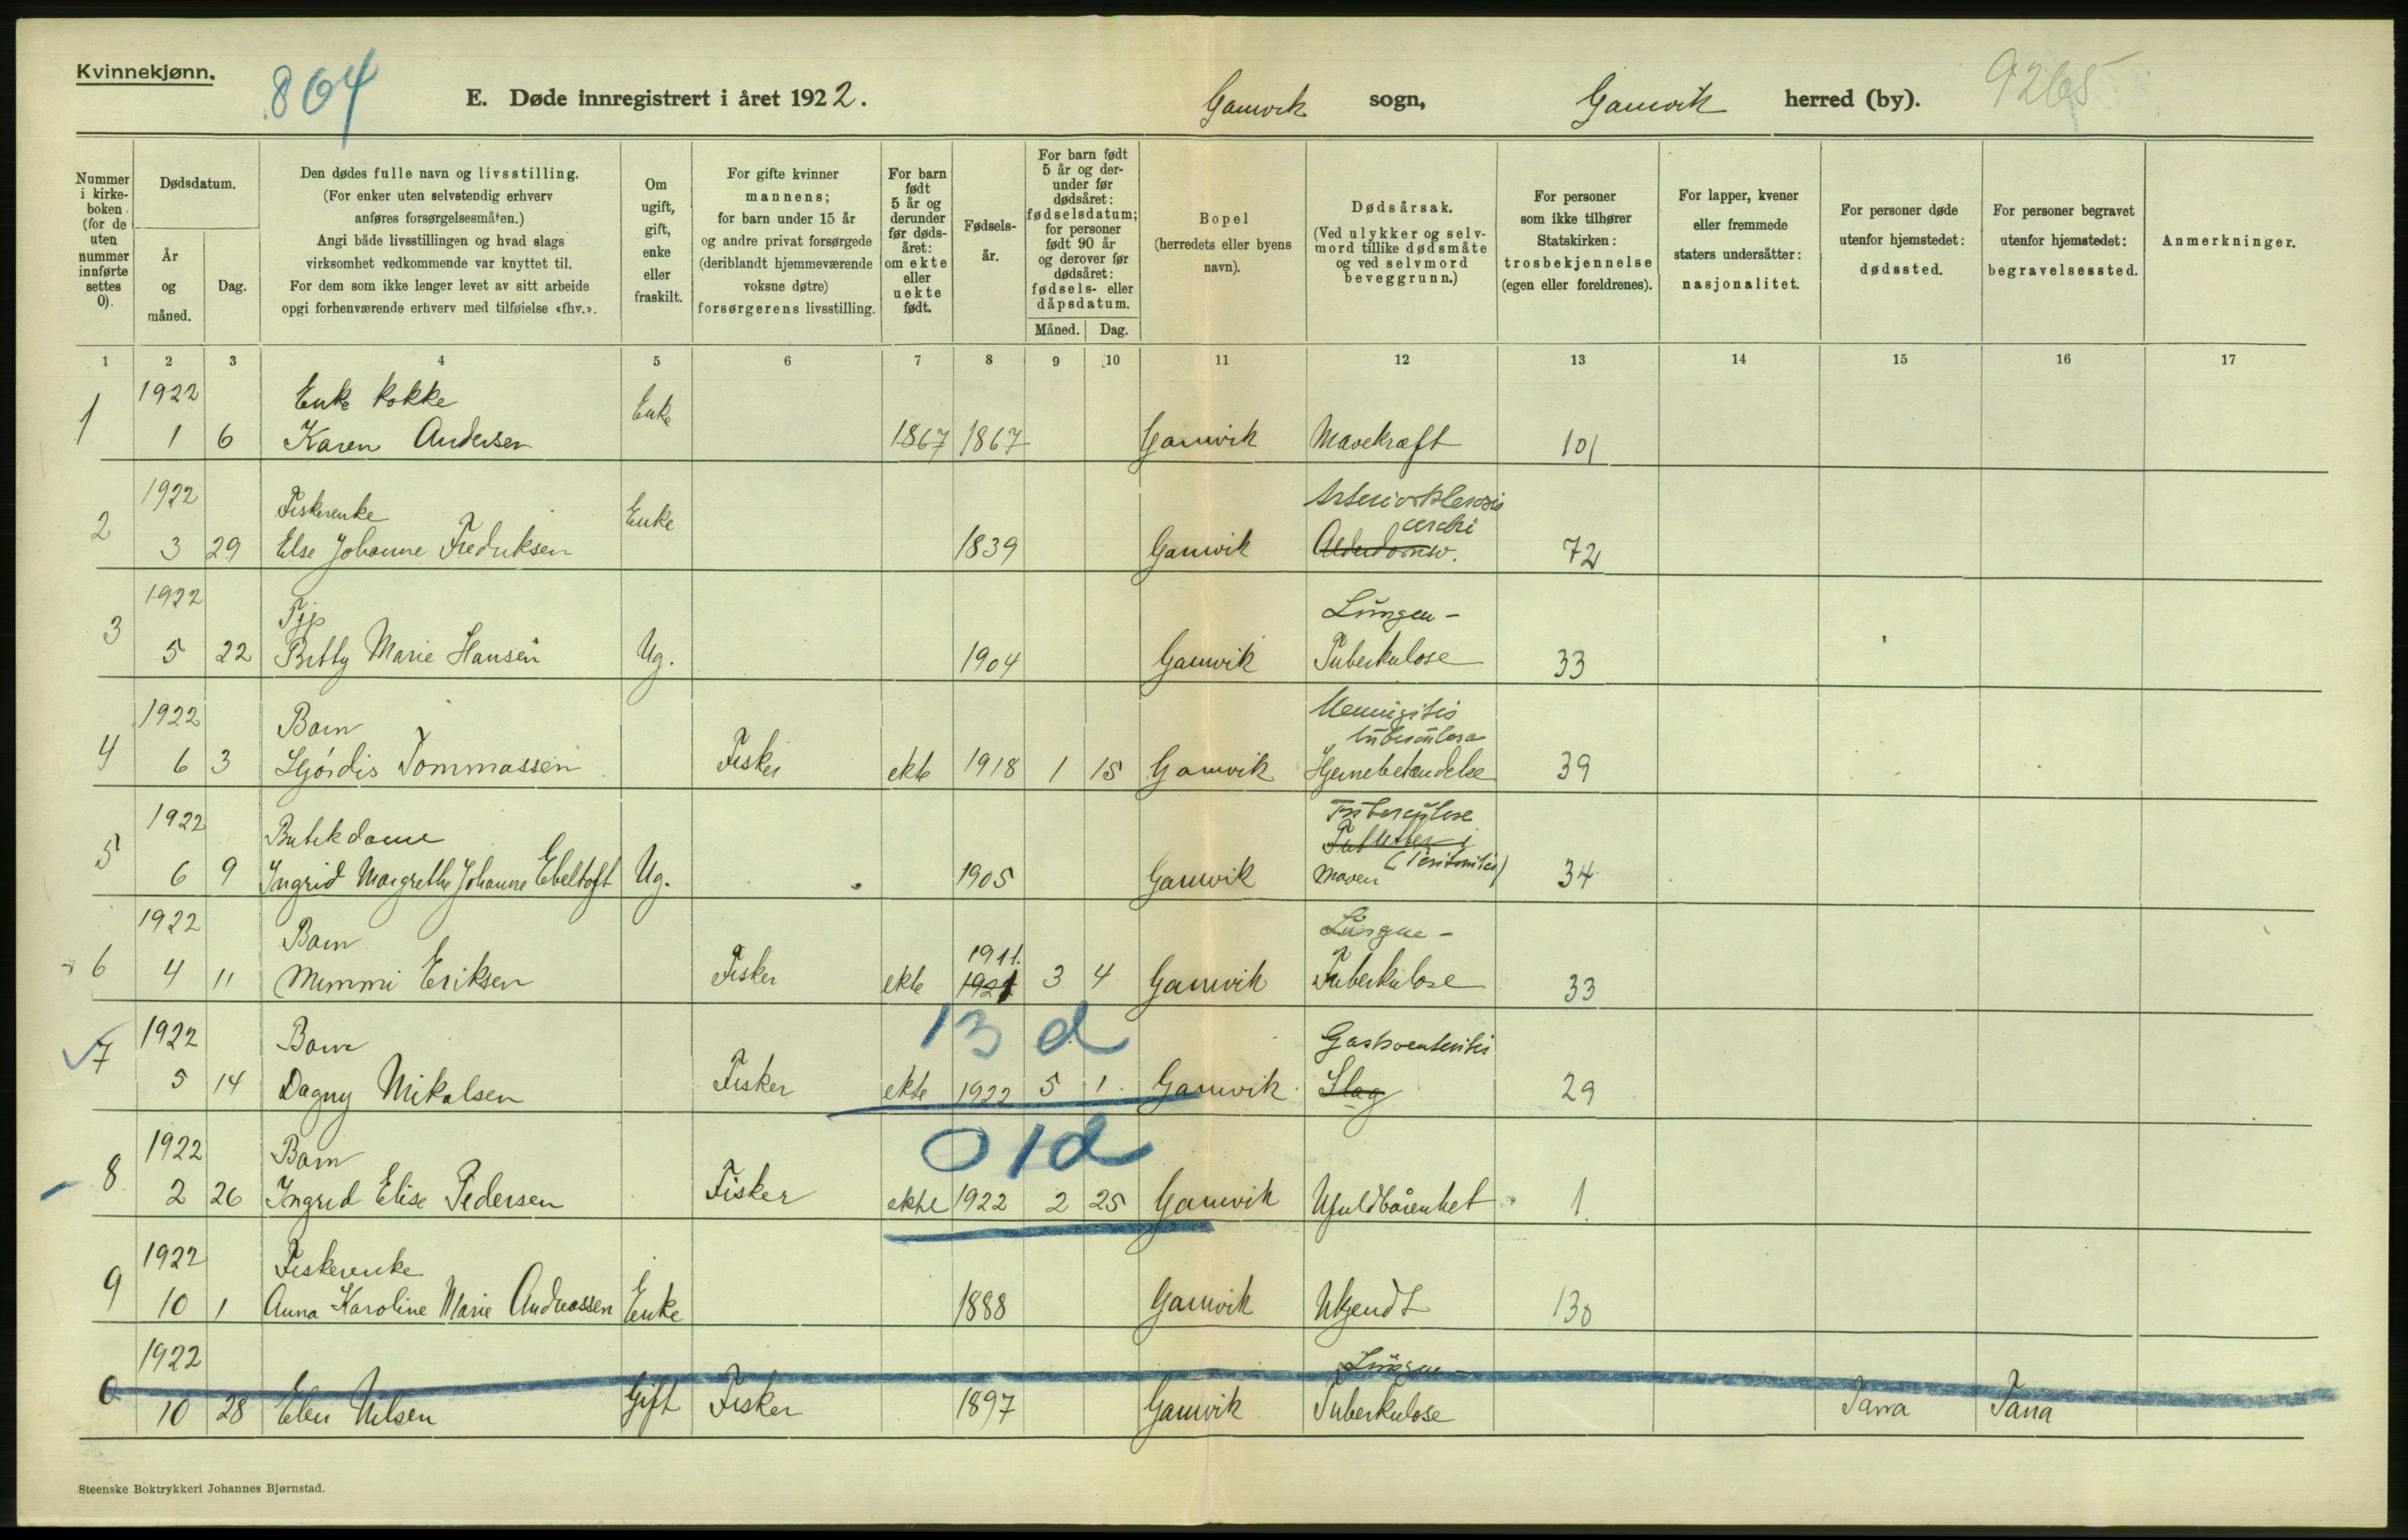 Kvinnekjønn.
864
E. Døde innregistrert i året 1922.
Gamvik sogn,
Gamvik herred (by).
9265
Nummer i kirkeboken (for de uten nummer innførte settes 0).
Dødsdatum.
År og måned.
Dag.
Den dødes fulle navn og livsstilling.
(For enker uten selvstendig erhverv
anføres forsørgelsesmåten.)
Angi både livsstillingen og hvad slags
virksomhet vedkommende var knyttet til.
For dem som ikke lenger levet av sitt arbeide
opgi forhenværende erhverv med tilføielse «fhv.».
Om ugift, gift, enke eller fraskilt.
For gifte kvinner
mannens;
for barn under 15 år
og andre privat forsørgede
(deriblandt hjemmeværende
voksne døtre)
forsørgerens livsstilling.
For barn født 5 år og derunder før dødsåret: om ekte eller uekte født.
Fødselsår.
For barn født 5 år og derunder før dødsåret: fødselsdatum; for personer født 90 år og derover før dødsåret: fødsels- eller dåpsdatum.
Måned. Dag.
Bopel
(herredets eller byens
navn).
Dødsårsak.
(Ved ulykker og selvmord tillike dødsmåte
og ved selvmord
beveggrunn.)
For personer
som ikke tilhører
Statskirken:
trosbekjennelse
(egen eller foreldrenes).
For lapper, kvener
eller fremmede
staters undersåtter:
nasjonalitet.
For personer døde
utenfor hjemstedet:
dødssted.
For personer begravet
utenfor hjemstedet:
begravelsessted.
Anmerkninger.
1 2 3 4 5 6 7 8 9 10 11 12 13 14 15 16 17
1922 Enke kokke Enke
1 1 6 Karen Andersen 1867 1867 Gamvik Mavekræft 101
1922 Fiskerenke Enke Arteriosklerosis
cerebri
2 3 29 Else Johanne Fredriksen 1839 Gamvik Alderdomsv. 72
1922 Tjp Lungen-
3 5 22 Betty Marie Hansen Ug. 1904 Gamvik Tuberkulose 33
1922 Barn Meningitis
tuberculosa
4 6 3 Hjørdis Tommassen Fisker ekte 1918 1 15 Gamvik Hjernebetændelse 39
1922 Butikdame Tuberculose
5 6 9 Ingrid Margrethe Johanne Ebeltoft Ug. 1905 Gamvik i Maven (Peritonitis) 34
1922 Barn 1911. Lungne-
6 4 11 Mimmi Eriksen Fisker ekte 1921 3 4 Gamvik Tuberkulose 33
13 d
1922 Barn Gastroenteritis
7 5 14 Dagny Mikalsen Fisker ekte 1922 5 1 Gamvik Slag 29
0 1d
1922 Barn
8 2 26 Ingrid Elise Pedersen Fisker ekte 1922 2 25 Gamvik Ufuldbårenhet 1
1922 Fiskerenke
9 10 1 Anna Karoline Marie Andreassen Enke 1888 Gamvik Ukjendt 130
1922 Lungne-
0 10 28 Elen Nilsen Gift Fisker 1897 Gamvik Tuberkulose Tana Tana
Steenske Boktrykkeri Johannes Bjørnstad.